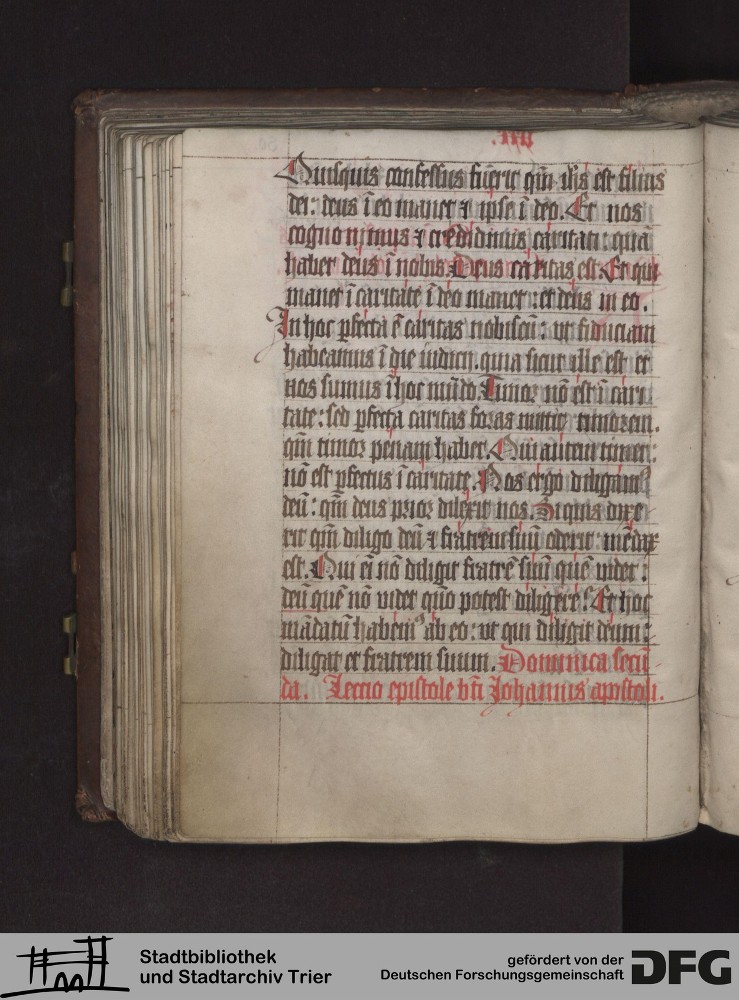 Quisquis confessus fuerit qm̄ ihs̄ est filius
dei: deus ī eo manet ⁊ ipse ī deo. Et nos
cognouimus ⁊ credidimus caritati quā
habet deus ī nobis. Deus caritas est. Et qui
manet ī caritate ī deo manet: et deus in eo.
In hoc ꝑfecta ē caritas nobiscū: ut fiduciam
habeamus ī die iudicii. quia sicut ille est et
nos sumus ī hoc mūdo. Timor nō est ī cari
tate: sed ꝑfecta caritas foras mittit timorem.
qm̄ timor penam habet. Qui autem timet:
nō est ꝑfectus ī caritate. Nos ergo diligamꝰ
deū: qm̄ deus prior dilexit nos. Siquis dixe
rit qm̄ diligo deū ⁊ fratrem suū oderit: mēdax
est. Qui eī nō diligit fratrē suū quē videt:
deū quē nō videt quō potest diligere? Et hoc
mādatū habemꝰ ab eo: ut qui diligit deum:
diligat et fratrem suum. Dominica secū
da. Lectio epistole bt̄i Johannis apostoli.
Stadtbibliothek
und Stadtarchiv Trier
gefördert von der
Deutschen Forschungsgemeinschaft
DFG